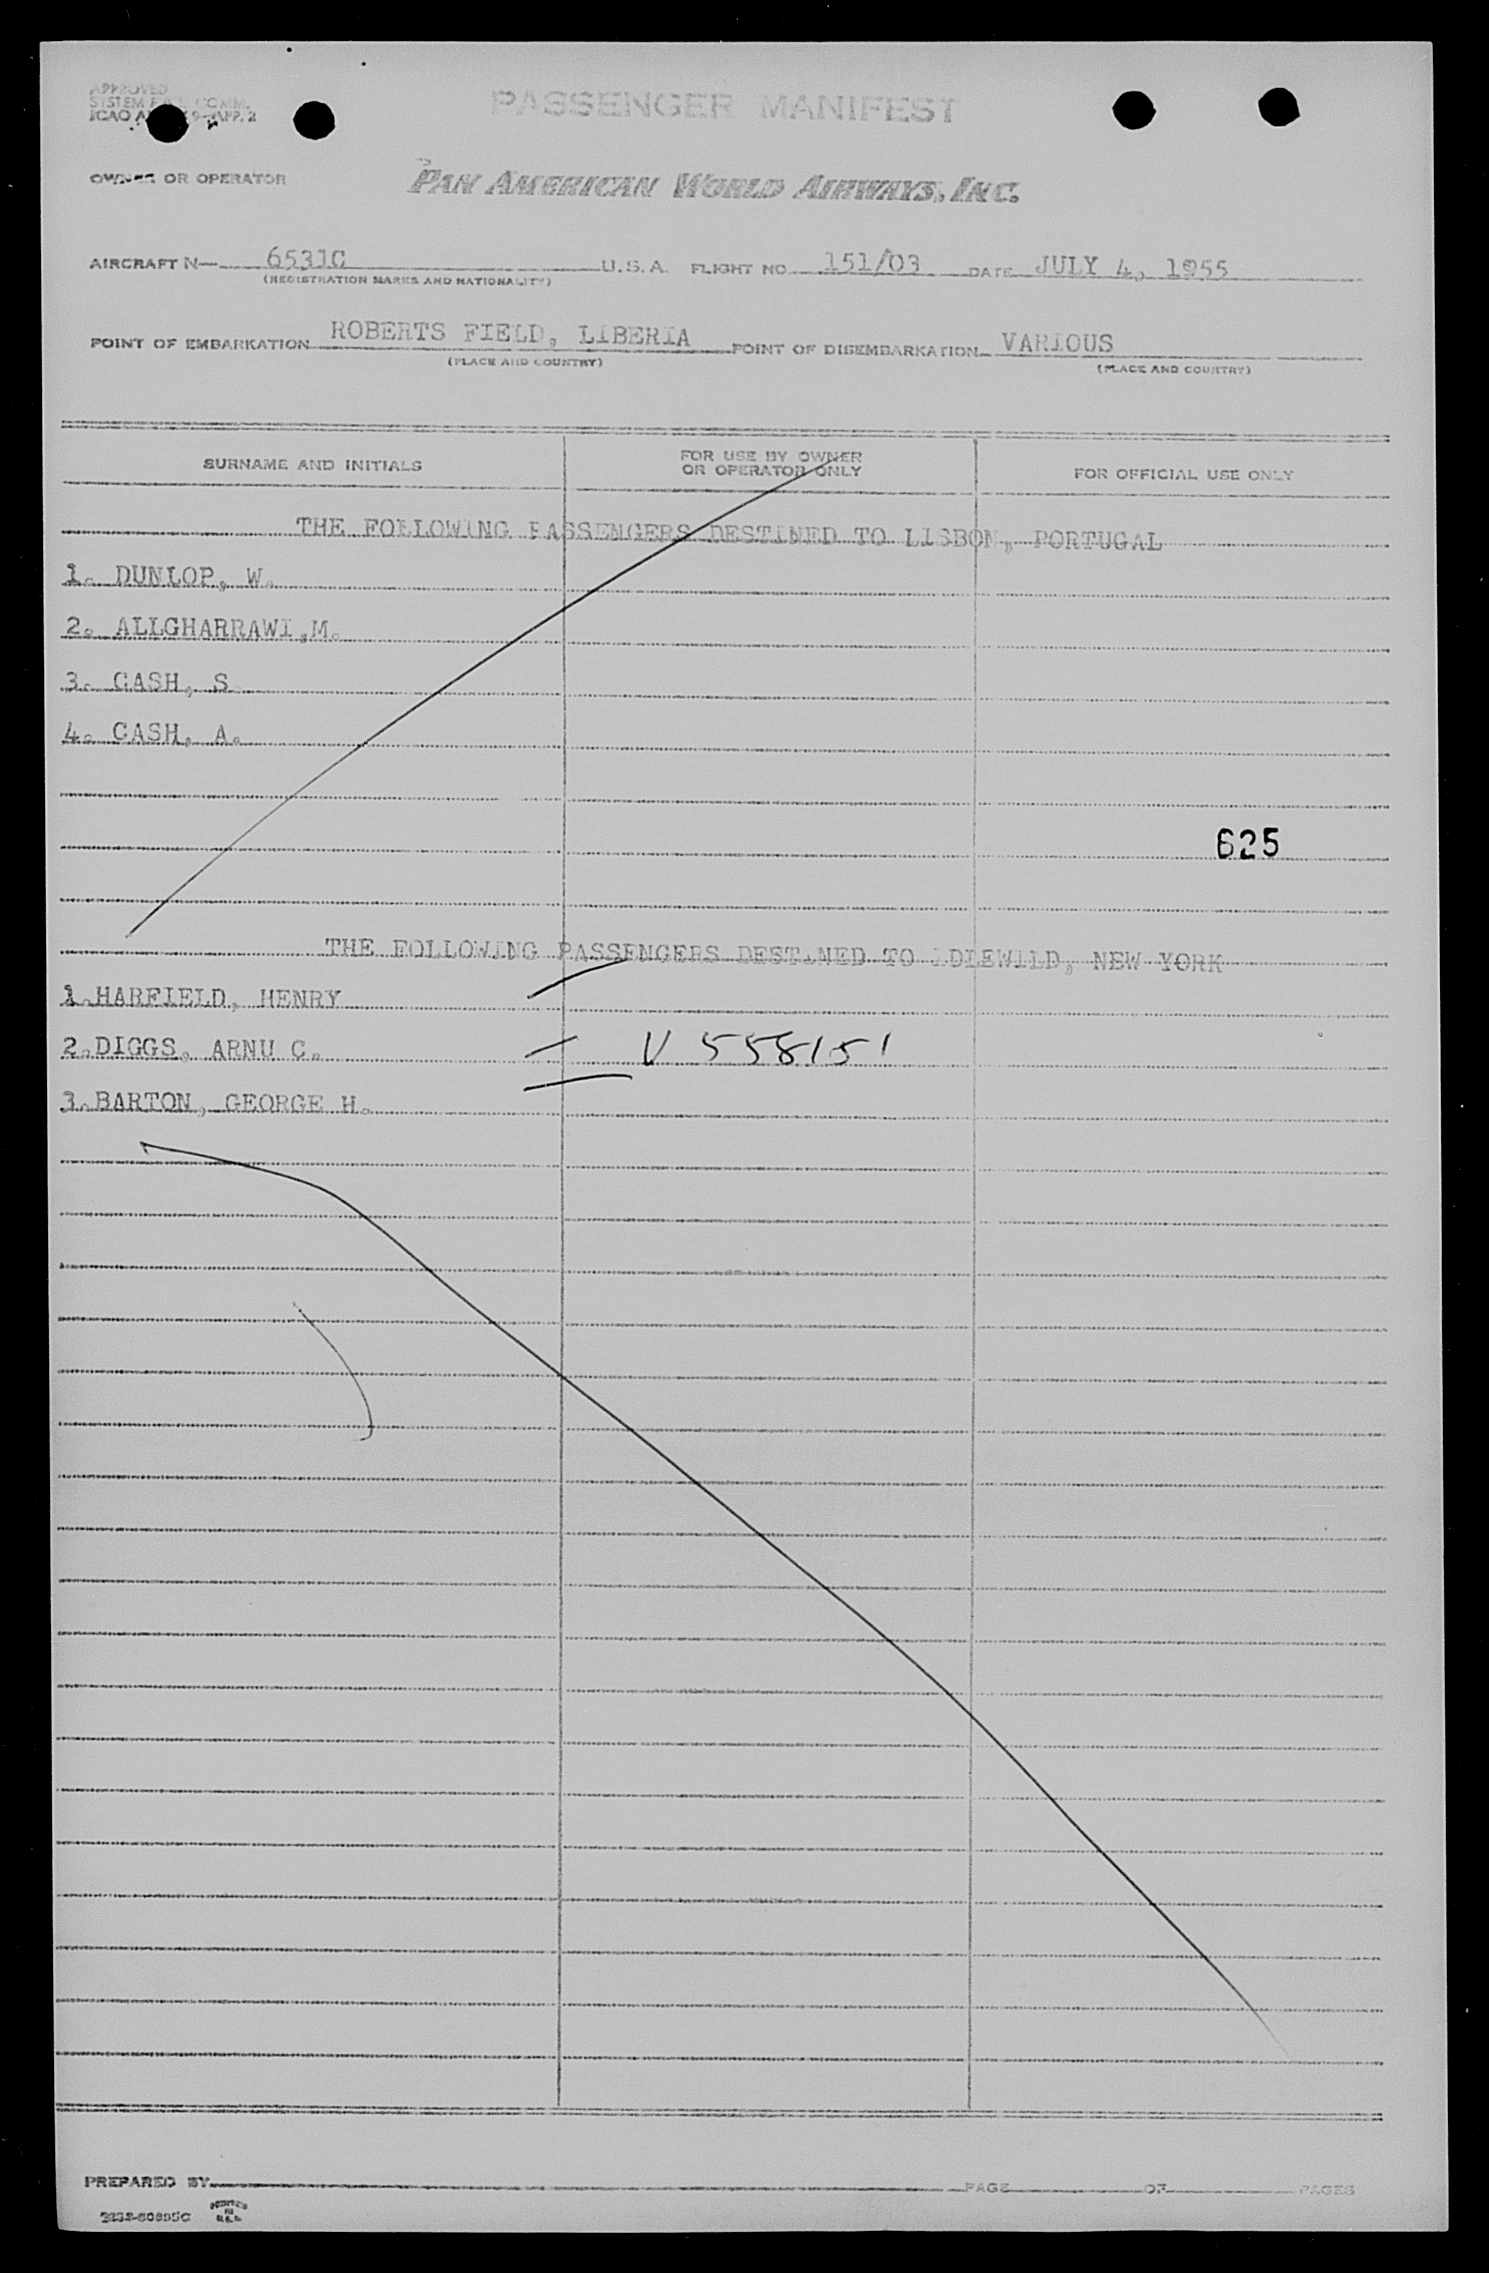 APPROVED
SYSTEM F.A.L. COMM.
ICAO 9-APP. 2
PASSENGER MANIFEST
OWNER OR OPERATOR PAN AMERICAN WORLD AIRWAYS, INC.
AIRCRAFT N- 6531C U.S.A. FLIGHT NO. 151/03 DATE JULY 4, 1955
(REGISTRATION MARKS AND NATIONALITY)
POINT OF EMBARKATION ROBERTS FIELD, LIBERIA POINT OF DISEMBARKATION VARIOUS
(PLACE AND COUNTRY) (PLACE AND COUNTRY)
SURNAME AND INITIALS FOR USE BY OWNER OR OPERATOR ONLY FOR OFFICIAL USE ONLY
THE FOLLOWING PASSENGERS DESTINED TO LISBON, PORTUGAL
1. DUNLOP, W.
2. ALLGHARRAWI,M.
3. CASH, S
4. CASH, A.
625
THE FOLLOWING PASSENGERS DESTINED TO IDLEWILD, NEW YORK
1.HARFIELD, HENRY
2.DIGGS, ARNU C. V 558151
3.BARTON, GEORGE H.
PREPARED BY PAGE OF PAGES
PRINTED IN U.S.A.